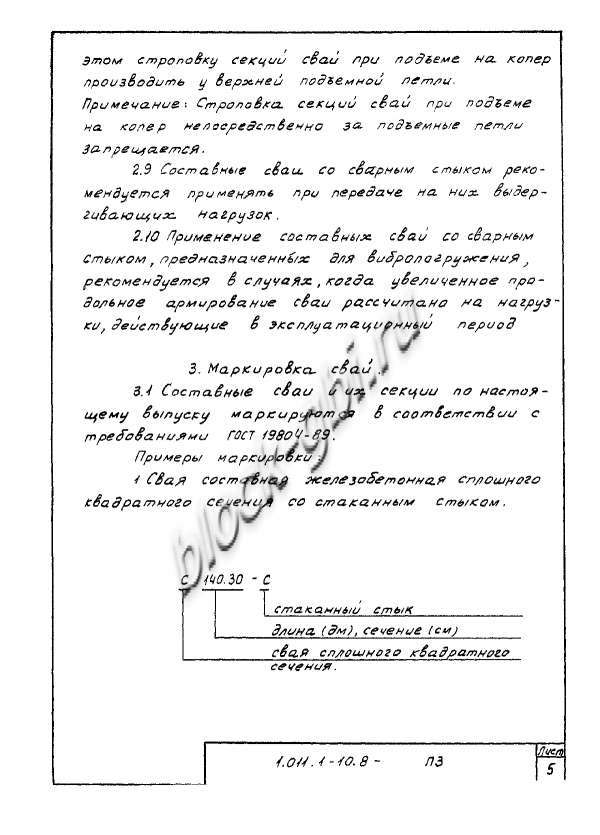 этом строповку секций свай при подъеме на копер
производить у верхней подъемной петли.
Примечание: Строповка секций свай при подъеме
на копер непосредственно за подъемные петли
запрещается.
2.9 Составные сваи со сварным стыком реко-
мендуется применять при передаче на них выдер-
гивающих нагрузок.
2.10 Применение составных свай со сварным
стыком, предназначенных для вибропогружения,
рекомендуется в случаях, когда увеличенное про-
дольное армирование сваи рассчитано на нагруз-
ки, действующие в эксплуатационный период
3. Маркировка свай.
3.1 Составные сваи и их секции по настоя-
щему выпуску маркируются в соответствии с
требованиями ГОСТ 19804-89.
Примеры маркировки:
1 Свая составная железобетонная сплошного
квадратного сечения со стаканным стыком.
С 140.30 - С
стаканный стык
длина (дм), сечение (см)
свая сплошного квадратного
сечения.
1.011.1-10.8- ПЗ
Лист
5
block-gbi.ru